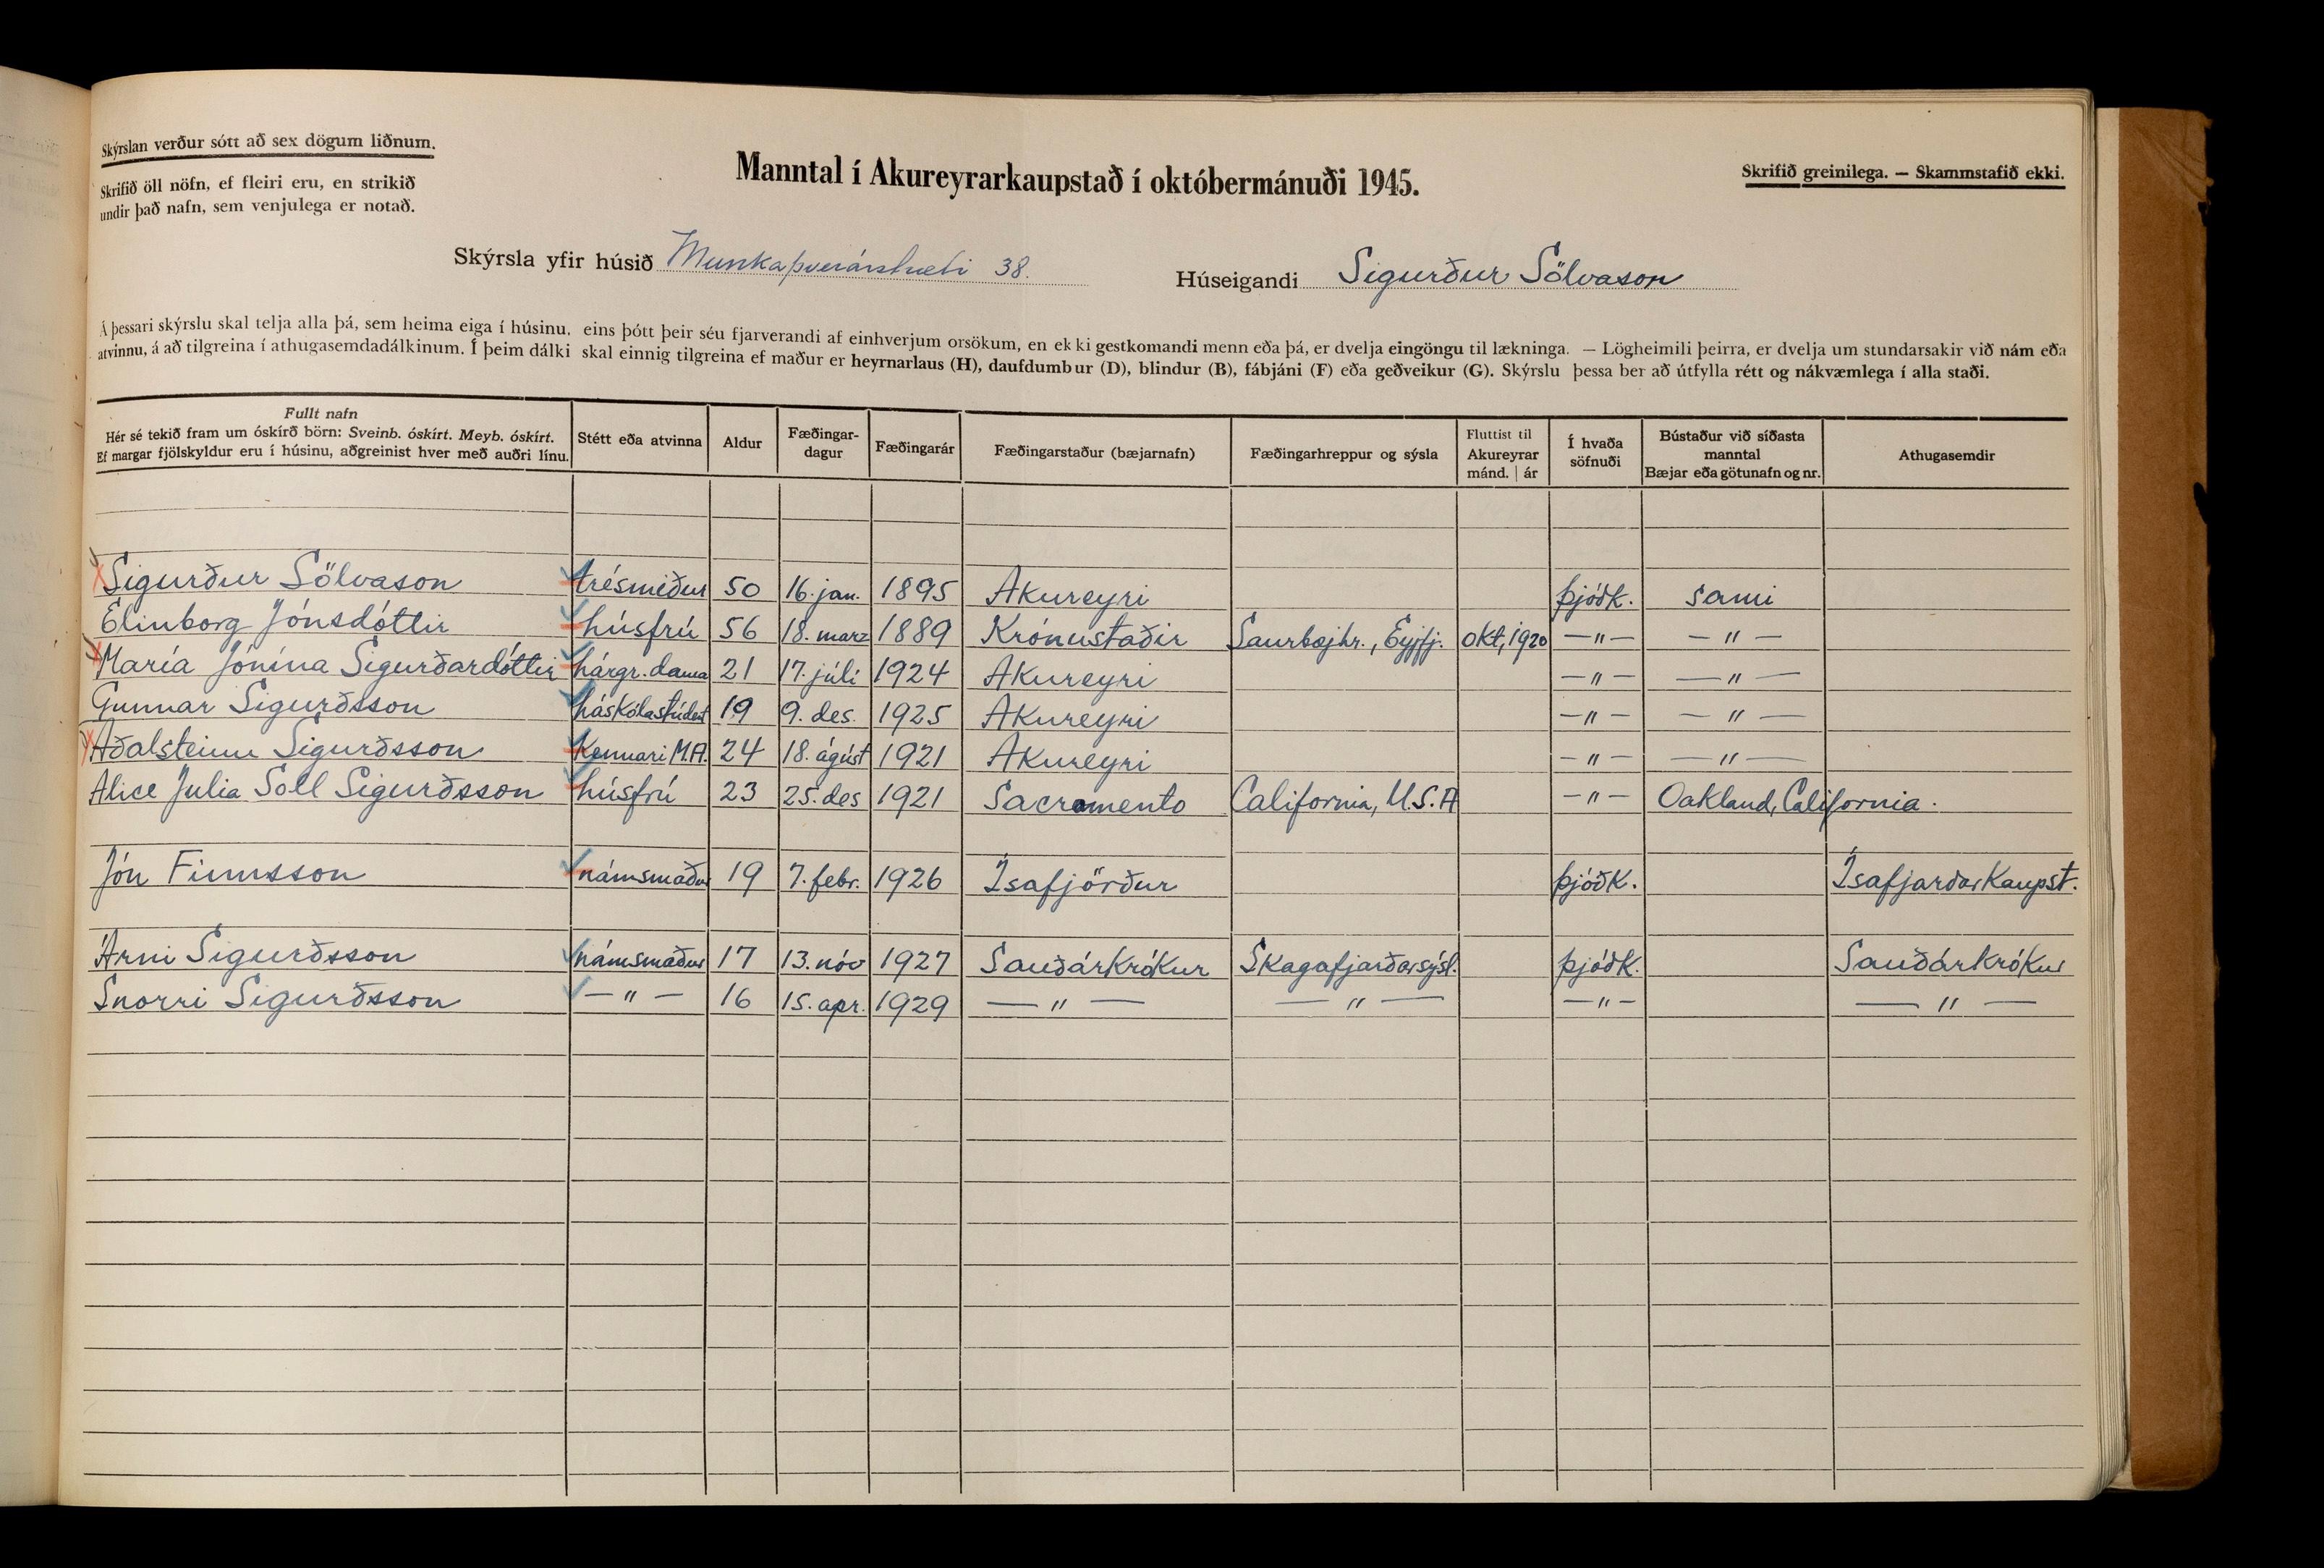 Skýrslan verður sótt að sex dögum liðnum.
Skrifið öll nöfn, ef fleiri eru, en strikið
undir það nafn, sem venjulega er notað.
Manntal í Akureyrarkaupstað í októbermánuði 1945.
Skrifið greinilega. — Skammstafið ekki.
Skýrsla yfir húsið Munkaþverárstræti 38.
Húseigandi Sigurður Sölvason
Á þessari skýrslu skal telja alla þá, sem heima eiga í húsinu, eins þótt þeir séu fjarverandi af einhverjum orsökum, en ekki gestkomandi menn eða þá, er dvelja eingöngu til lækninga. — Lögheimili þeirra, er dvelja um stundarsakir við nám eða
atvinnu, á að tilgreina í athugasemdadálkinum. Í þeim dálki skal einnig tilgreina ef maður er heyrnarlaus (H), daufdumbur (D), blindur (B), fábjáni (F) eða geðveikur (G). Skýrslu þessa ber að útfylla rétt og nákvæmlega í alla staði.
Fullt nafn
Hér sé tekið fram um óskírð börn: Sveinb. óskírt. Meyb. óskírt.
Ef margar fjölskyldur eru í húsinu, aðgreinist hver með auðri línu.
Stétt eða atvinna
Aldur
Fæðingar-
dagur
Fæðingarár
Fæðingarstaður (bæjarnafn)
Fæðingarhreppur og sýsla
Fluttist til
Akureyrar
mánd. | ár
Í hvaða
söfnuði
Bústaður við síðasta
manntal
Bæjar eða götunafn og nr.
Athugasemdir
Sigurður Sölvason trésmiður 50 16. jan. 1895 Akureyri þjóðk. sami
Elinborg Jónsdóttir húsfrú 56 18. marz 1889 Krónustaðir Saurbæjhr., Eyjfj. okt, 1920 —〃— —〃—
María Jónína Sigurðardóttir hárgr.dama 21 17. júlí 1924 Akureyri —〃— —〃—
Gunnar Sigurðsson háskólastúdent 19 9. des. 1925 Akureyri —〃— —〃—
Aðalsteinn Sigurðsson Kennari M.A. 24 18. ágúst 1921 Akureyri —〃— —〃—
Alice Julia Soll Sigurðsson húsfrú 23 25. des 1921 Sacramento California, U.S.A —〃— Oakland, California.
Jón Finnsson námsmaður 19 7. febr. 1926 Ísafjörður þjóðk. Ísafjarðarkaupst.
Árni Sigurðsson námsmaður 17 13. nóv 1927 Sauðárkrókur Skagafjarðarsýsl. þjóðk. Sauðárkrókur
Snorri Sigurðsson —〃— 16 15. apr. 1929 —〃— —〃— —〃— —〃—